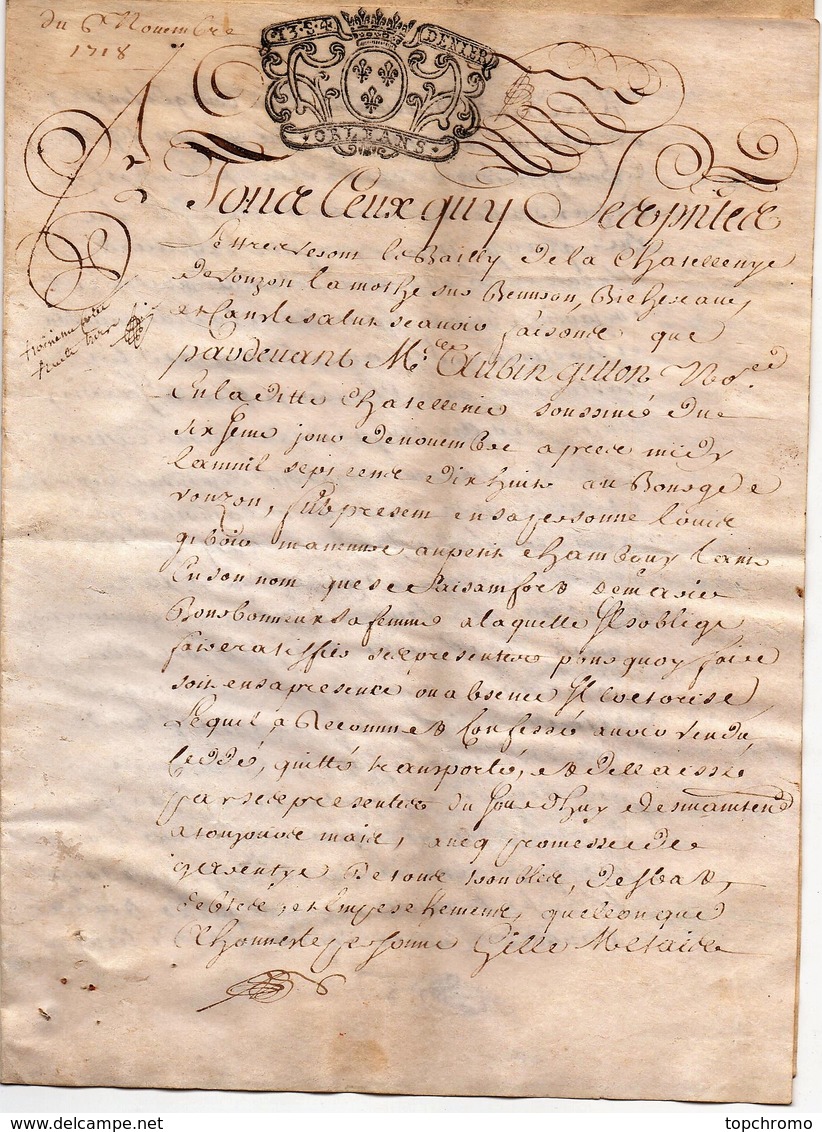 du 6e Nouembre
1718
13 S 4 DENIER
ORLEANS
A Tous Ceux quy Ses pntes
Lettres veront le Bailly de la Chatellenye
de vouzon la mothe sur Beuvron,
et salut scavoir faisons que
pardevant Me Aubin gillon No.re
En laditte Chatellenie soussiné du
sixjeme jour de nouembre apres midy
lan mil sept cens dix huit au Bourg de
vouzon, fut present en sa personne Louis
manenue au petit chambony tant
En son nom que se faisant fort de marie
Bourbonneux sa femme a laquelle Il soblige
faire ratiffier ses presentes pour quoy faire
soit en sa presence ou absence Il loctorise
Lequel a Reconnu et Confessé avoir vendu
ceddé, quitté transporté, et dellaissé
par ses presentes du jourdhuy des maintend
a toujours mais, aucq promesse de
garentye de tous troubles, desbat,
debtes, et Empeschemens, quelconque
A honneste personne Gille Metaier
topchromo
delcampe.net